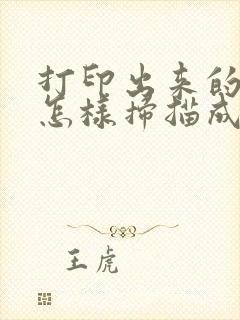 打印出来的
怎样扫描成
王虎